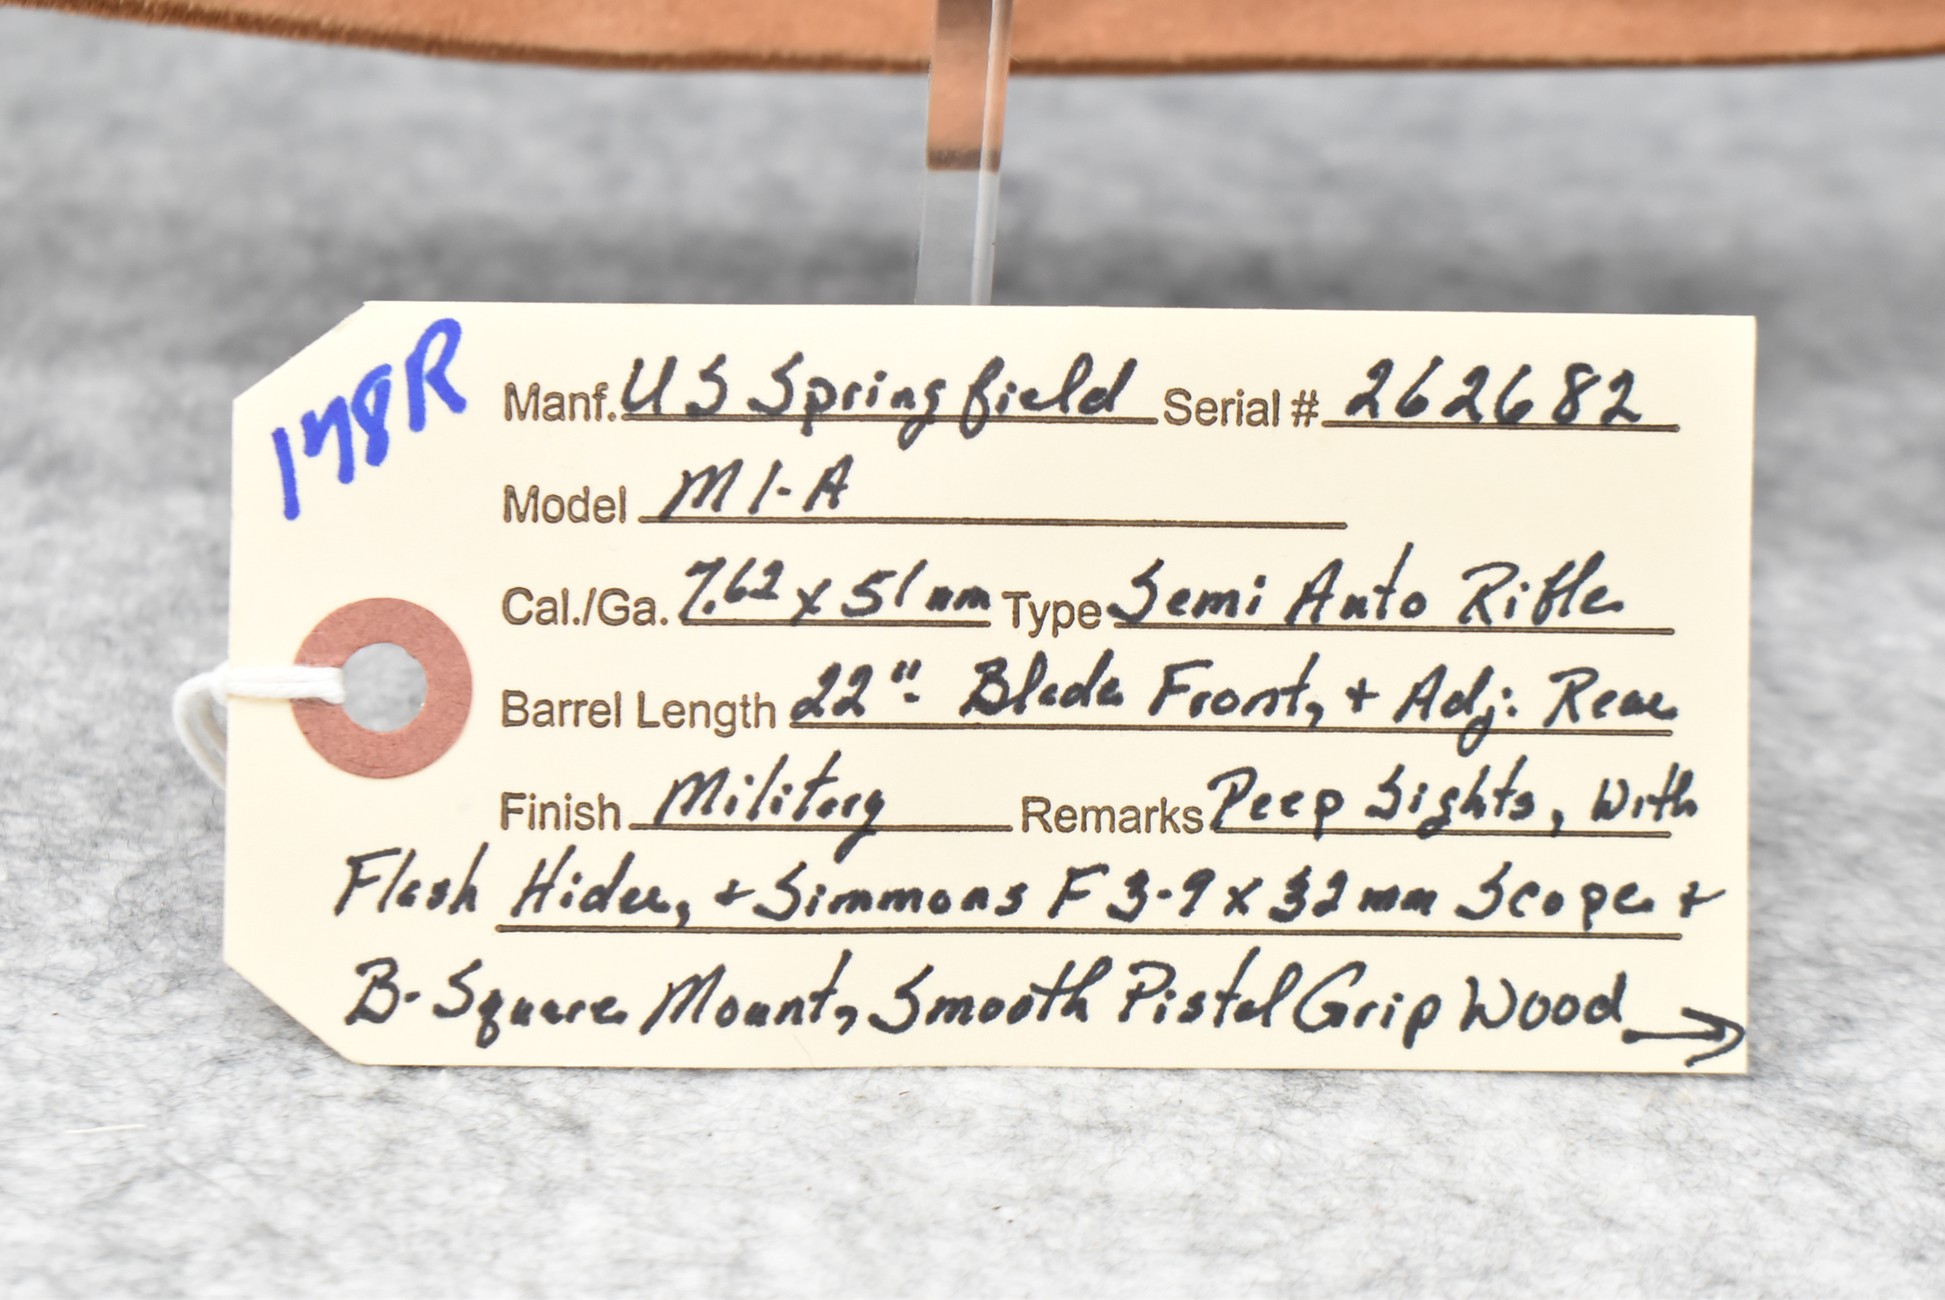 178R
Manf. US Springfield Serial # 262682
Model M1-A
Cal./Ga. 7.62 x 51mm Type Semi Auto Rifle
Barrel Length 22". Blade Front, + Adj. Rear
Finish Military Remarks Peep Sights, With
Flash Hider, + Simmons F 3-9 x 32mm Scope +
B-Square Mount, Smooth Pistol Grip Wood →